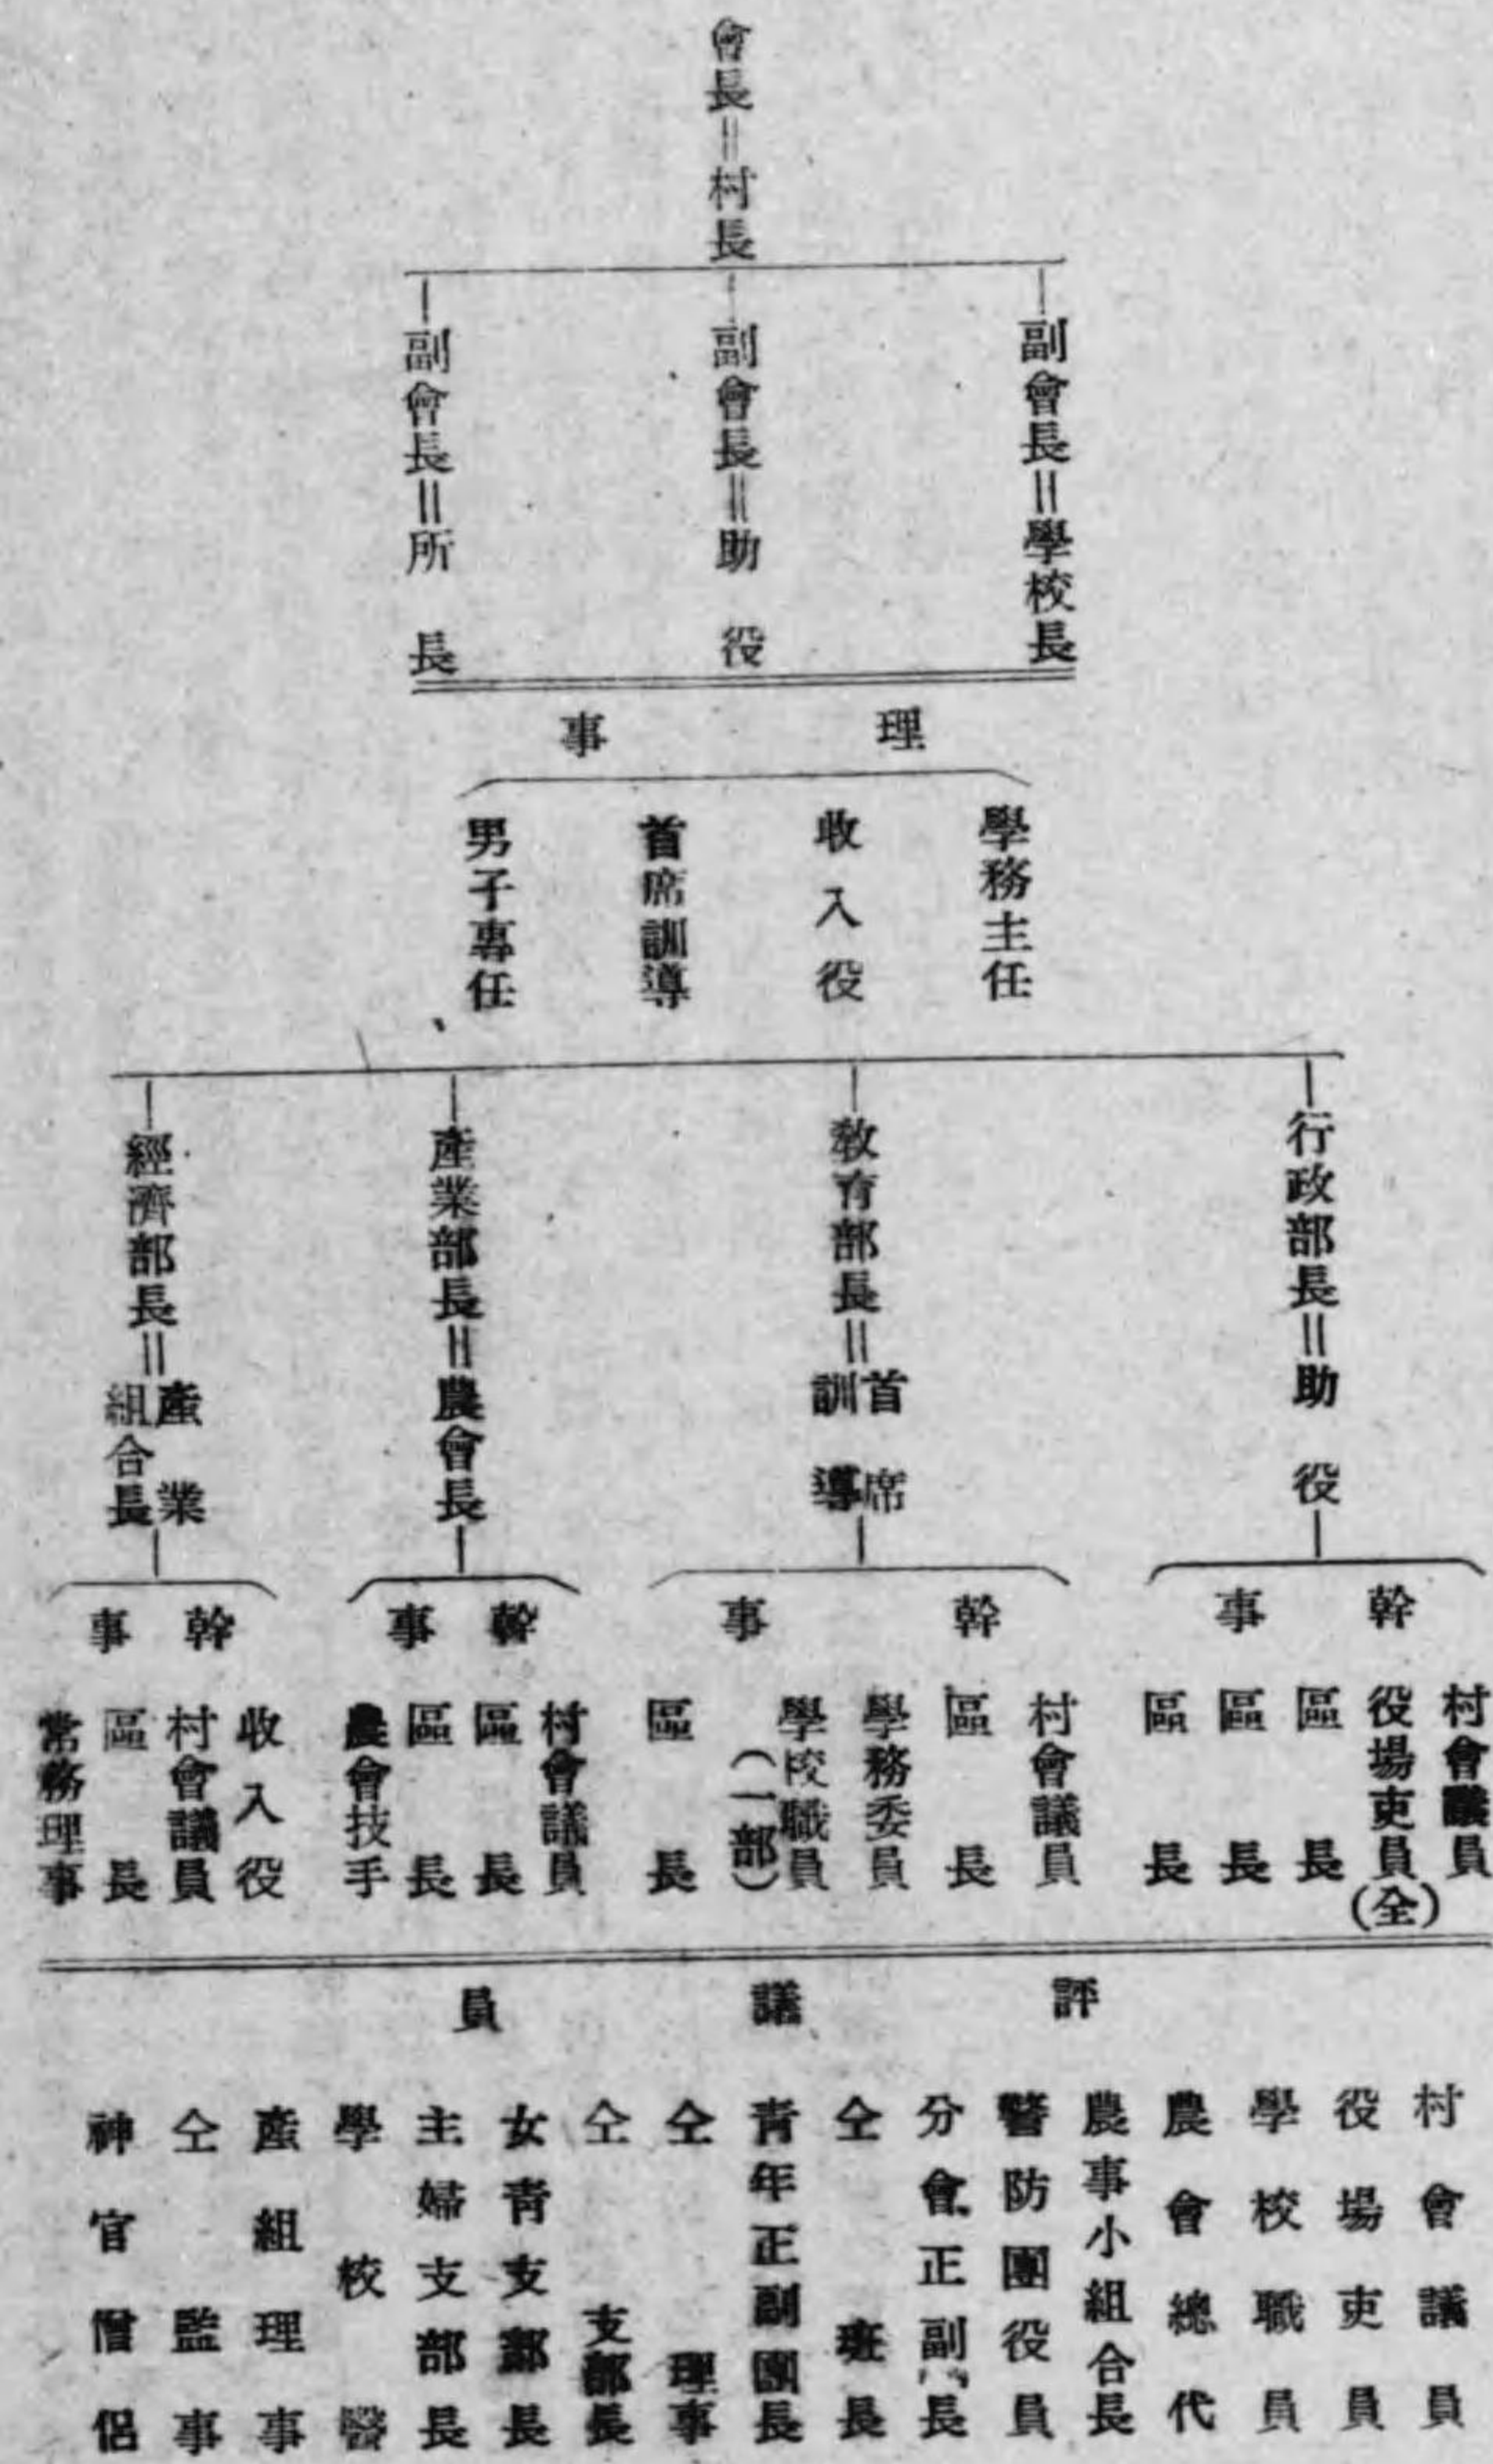 會長＝村長
副會長＝學校長
副會長＝助役
副會長＝所長
理事
學務主任
收入役
首席訓導
男子專任
行政部長＝助役
幹事
村會議員
役場吏員(全)
區長
區長
區長
教育部長＝首席訓導
幹事
村會議員
區長
學務委員
學校職員(一部)
區長
產業部長＝農會長
幹事
村會議員
區長
區長
農會技手
經濟部長＝產業組合長
幹事
收入役
村會議員
區長
常務理事
評議員
村會議員
役場吏員
學校職員
農會總代
農事小組合長
警防團役員
分會正副長
仝班長
青年正副團長
仝理事
仝支部長
女青支部長
主婦支部長
學校醫
產組理事
仝監事
神官僧侶